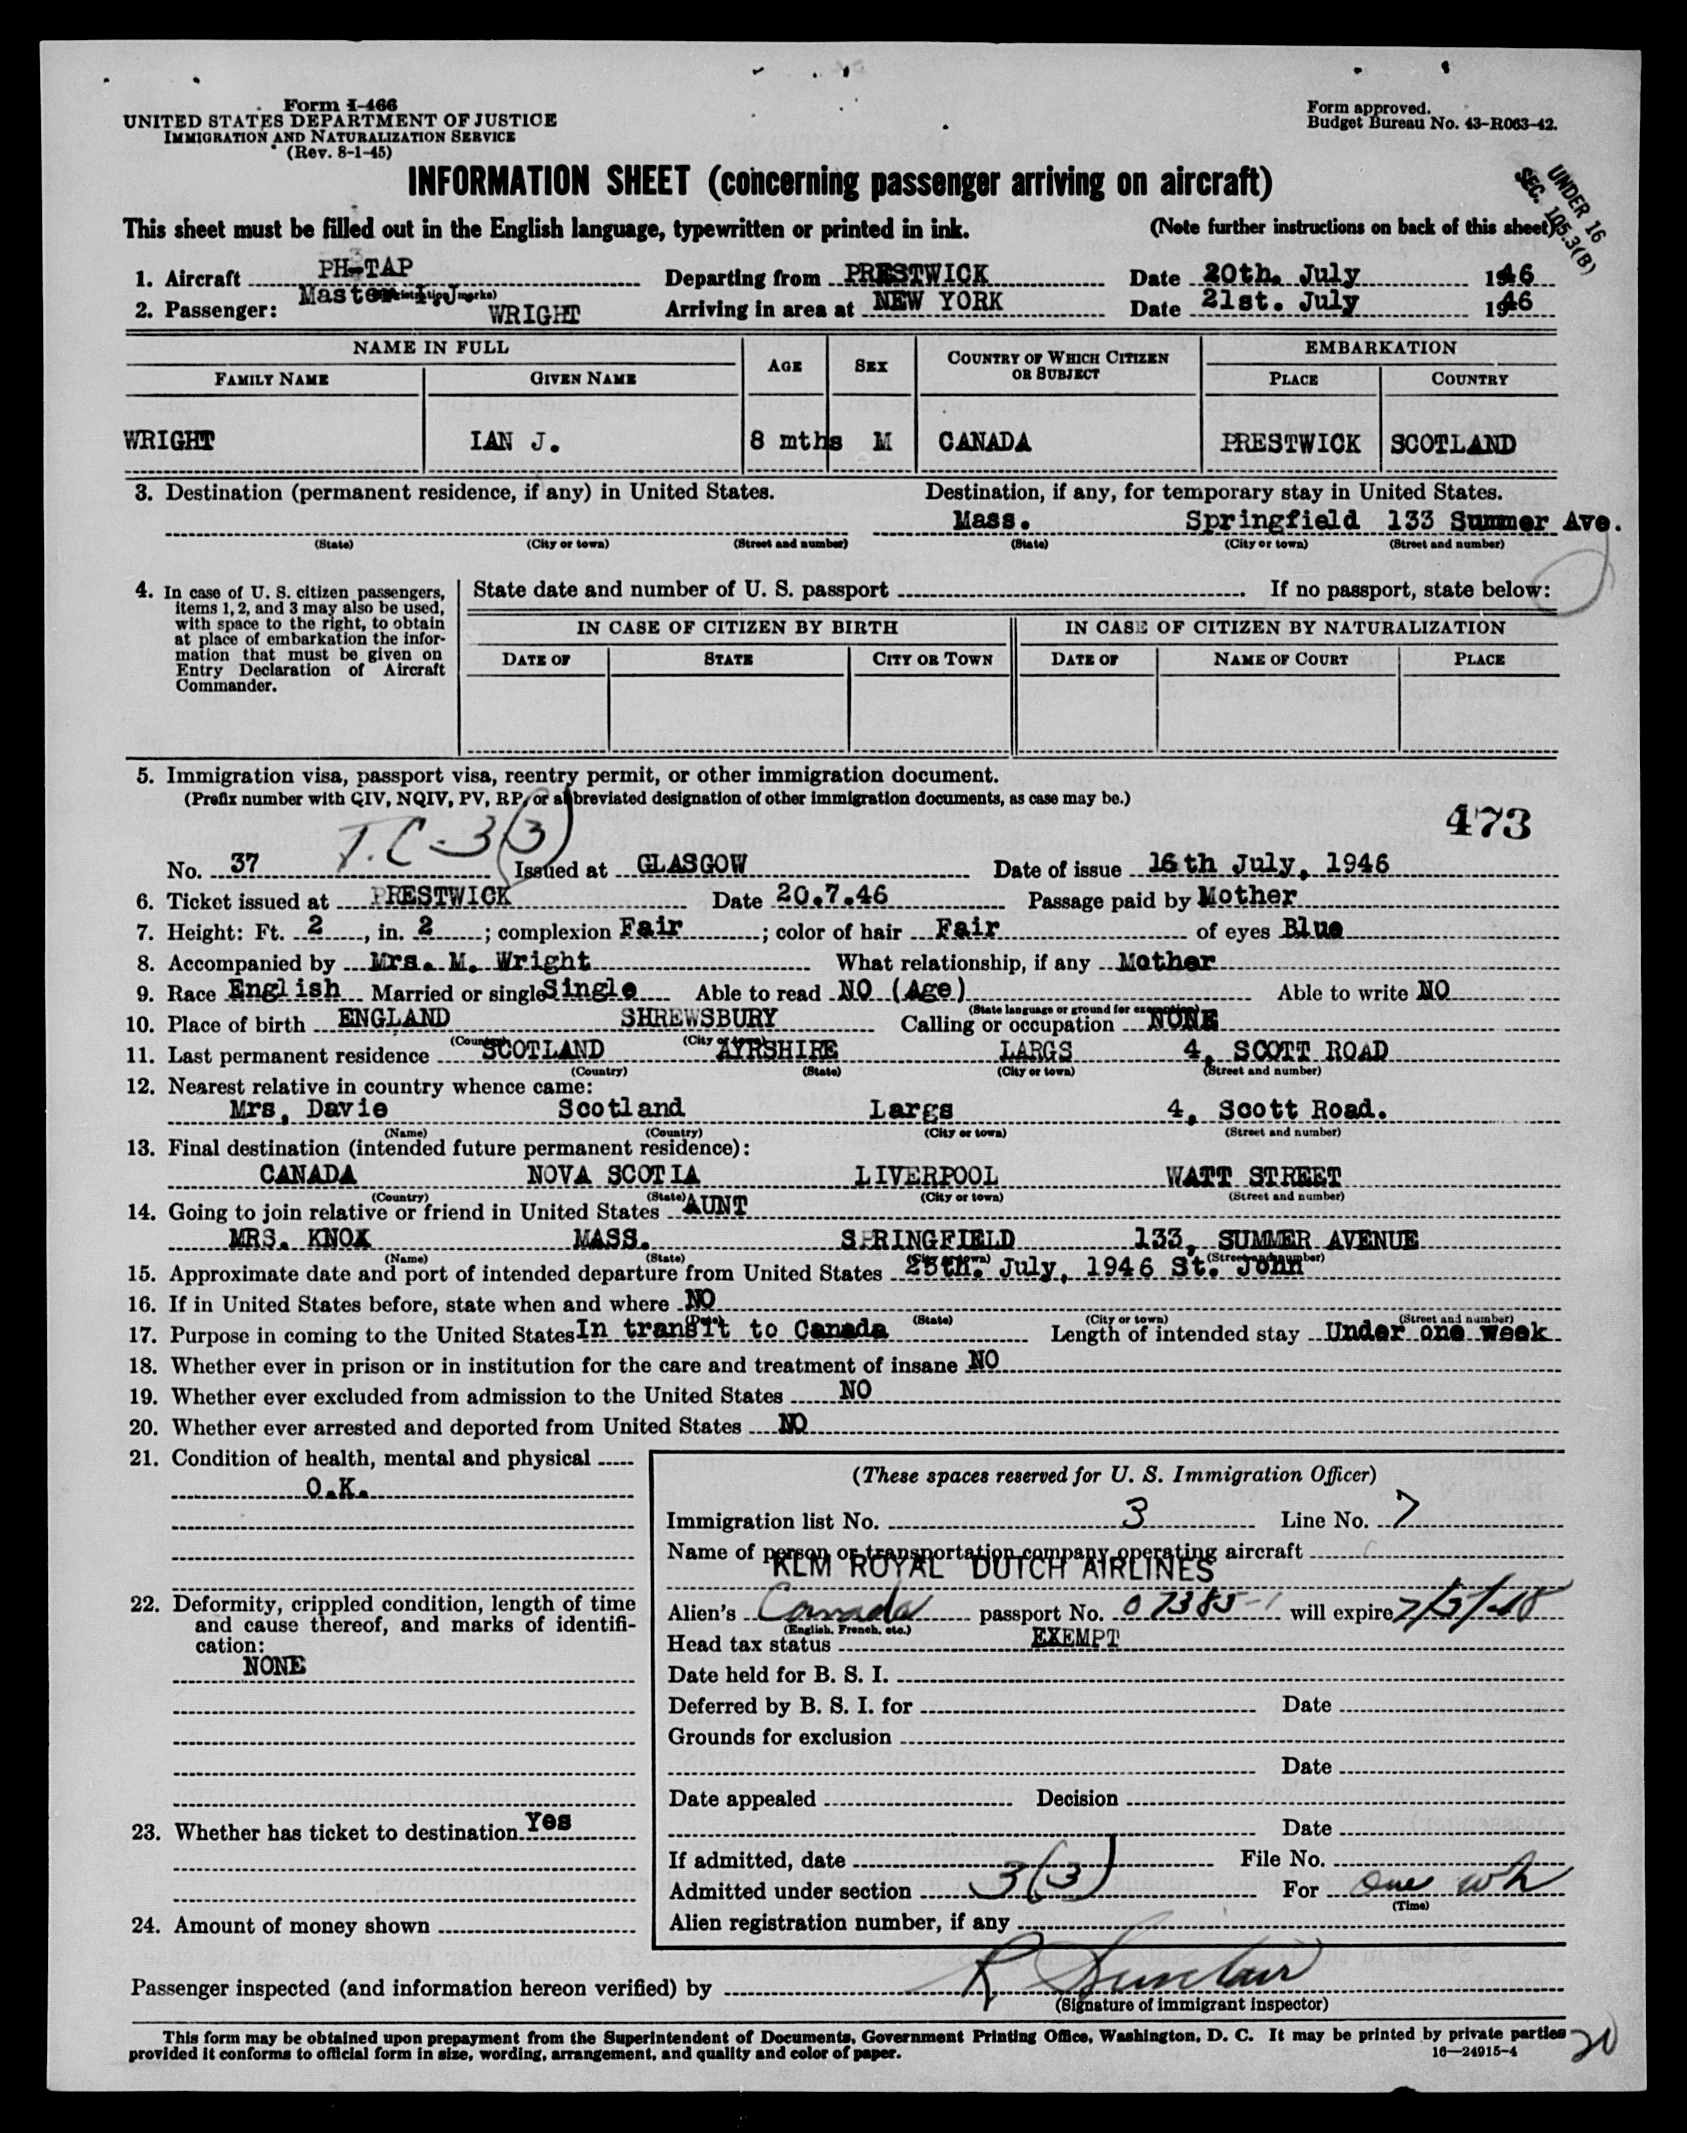 Form I-466
UNITED STATES DEPARTMENT OF JUSTICE
IMMIGRATION AND NATURALIZATION SERVICE
(Rev. 8-1-45)
Form approved.
Budget Bureau No. 43-R063-42.
INFORMATION SHEET (concerning passenger arriving on aircraft)
UNDER 16
SEC. 105.3(B)
This sheet must be filled out in the English language, typewritten or printed in ink. (Note further instructions on back of this sheet)
1. Aircraft PH-TAP Departing from PRESTWICK Date 20th. July 1946
2. Passenger: Master I. J. WRIGHT Arriving in area at NEW YORK Date 21st. July 1946
NAME IN FULL AGE SEX COUNTRY OF WHICH CITIZEN OR SUBJECT EMBARKATION
FAMILY NAME GIVEN NAME PLACE COUNTRY
WRIGHT IAN J. 8 mths M CANADA PRESTWICK SCOTLAND
3. Destination (permanent residence, if any) in United States. Destination, if any, for temporary stay in United States.
Mass. Springfield 133 Summer Ave.
(State) (City or town) (Street and number) (State) (City or town) (Street and number)
4. In case of U. S. citizen passengers, items 1, 2, and 3 may also be used, with space to the right, to obtain at place of embarkation the information that must be given on Entry Declaration of Aircraft Commander.
State date and number of U. S. passport . If no passport, state below:
IN CASE OF CITIZEN BY BIRTH IN CASE OF CITIZEN BY NATURALIZATION
DATE OF STATE CITY OR TOWN DATE OF NAME OF COURT PLACE
5. Immigration visa, passport visa, reentry permit, or other immigration document.
(Prefix number with QIV, NQIV, PV, RP, or abbreviated designation of other immigration documents, as case may be.)
473
T.C-3(3)
No. 37 Issued at GLASGOW Date of issue 16th July, 1946
6. Ticket issued at PRESTWICK Date 20.7.46 Passage paid by Mother
7. Height: Ft. 2, in. 2; complexion Fair; color of hair Fair of eyes Blue
8. Accompanied by Mrs. M. Wright What relationship, if any Mother
9. Race English Married or single Single Able to read NO (Age) Able to write NO
(State language or ground for exemption)
10. Place of birth ENGLAND SHREWSBURY Calling or occupation NONE
(Country) (City or town)
11. Last permanent residence SCOTLAND AYRSHIRE LARGS 4, SCOTT ROAD
(Country) (State) (City or town) (Street and number)
12. Nearest relative in country whence came:
Mrs. Davie Scotland Largs 4, Scott Road.
(Name) (Country) (City or town) (Street and number)
13. Final destination (intended future permanent residence):
CANADA NOVA SCOTIA LIVERPOOL WATT STREET
(Country) (State) (City or town) (Street and number)
14. Going to join relative or friend in United States AUNT
MRS. KNOX MASS. SPRINGFIELD 133, SUMMER AVENUE
(Name) (State) (City or town) (Street and number)
15. Approximate date and port of intended departure from United States 25th. July, 1946 St. John
16. If in United States before, state when and where NO
(Date) (State) (City or town) (Street and number)
17. Purpose in coming to the United States In transit to Canada Length of intended stay Under one week
18. Whether ever in prison or in institution for the care and treatment of insane NO
19. Whether ever excluded from admission to the United States NO
20. Whether ever arrested and deported from United States NO
21. Condition of health, mental and physical
O.K.
22. Deformity, crippled condition, length of time and cause thereof, and marks of identification:
NONE
23. Whether has ticket to destination Yes
24. Amount of money shown
(These spaces reserved for U. S. Immigration Officer)
Immigration list No. 3 Line No. 7
Name of person or transportation company operating aircraft
KLM ROYAL DUTCH AIRLINES
Alien's Canada passport No. 07385-1 will expire
(English, French, etc.)
Head tax status EXEMPT
Date held for B. S. I.
Deferred by B. S. I. for Date
Grounds for exclusion
Date
Date appealed Decision
Date
If admitted, date File No.
Admitted under section 3(3) For One wk
(Time)
Alien registration number, if any
Passenger inspected (and information hereon verified) by R Sinclair
(Signature of immigrant inspector)
This form may be obtained upon prepayment from the Superintendent of Documents, Government Printing Office, Washington, D. C. It may be printed by private parties
provided it conforms to official form in size, wording, arrangement, and quality and color of paper. 16—24915-4
20